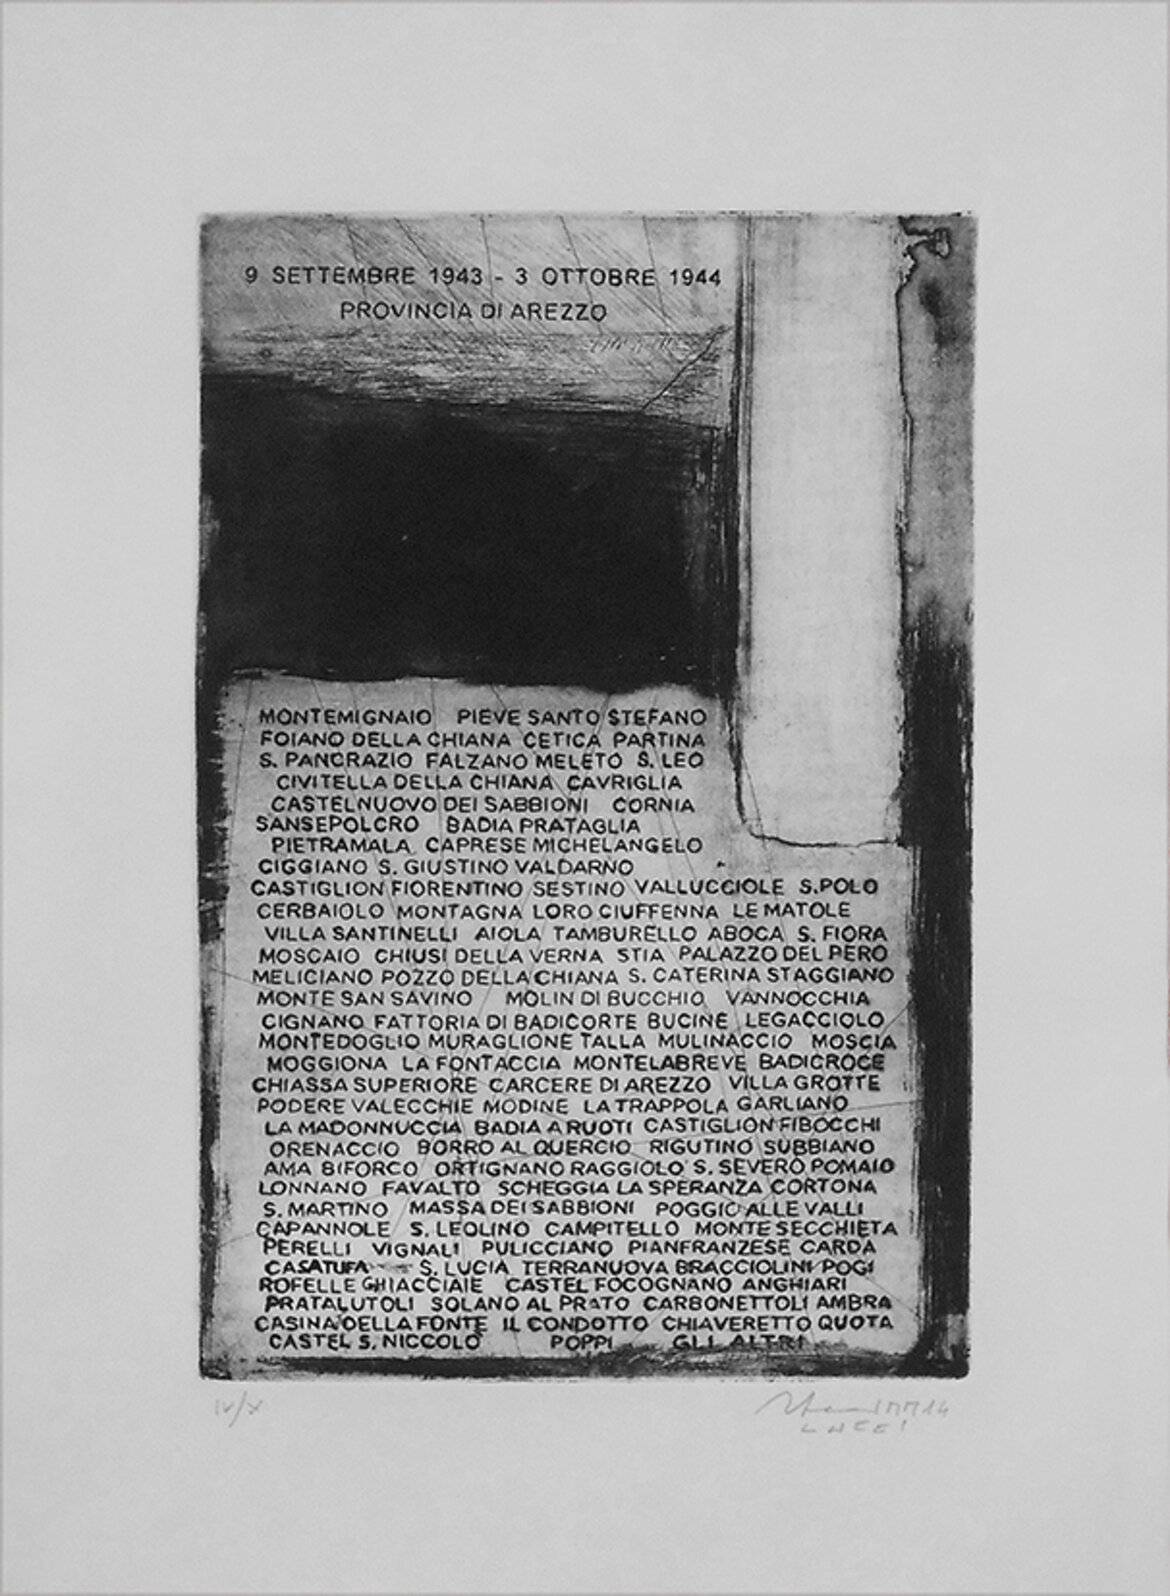 9 SETTEMBRE 1943 - 3 OTTOBRE 1944
PROVINCIA DI AREZZO
MONTEMIGNAIO PIEVE SANTO STEFANO
FOIANO DELLA CHIANA CETICA PARTINA
S. PANCRAZIO FALZANO MELETO S. LEO
CIVITELLA DELLA CHIANA CAVRIGLIA
CASTELNUOVO DEI SABBIONI CORNIA
SANSEPOLCRO BADIA PRATAGLIA
PIETRAMALA CAPRESE MICHELANGELO
CIGGIANO S. GIUSTINO VALDARNO
CASTIGLION FIORENTINO SESTINO VALLUCCIOLE S.POLO
CERBAIOLO MONTAGNA LORO CIUFFENNA LE MATOLE
VILLA SANTINELLI AIOLA TAMBURELLO ABOCA S. FIORA
MOSCAIO CHIUSI DELLA VERNA STIA PALAZZO DEL PERO
MELICIANO POZZO DELLA CHIANA S. CATERINA STAGGIANO
MONTE SAN SAVINO MOLIN DI BUCCHIO VANNOCCHIA
CIGNANO FATTORIA DI BADICORTE BUCINE LEGACCIOLO
MONTEDOGLIO MURAGLIONE TALLA MULINACCIO MOSCIA
MOGGIONA LA FONTACCIA MONTELABREVE BADICROCE
CHIASSA SUPERIORE CARCERE DI AREZZO VILLA GROTTE
PODERE VALECCHIE MODINE LA TRAPPOLA GARLIANO
LA MADONNUCCIA BADIA A RUOTI CASTIGLION FIBOCCHI
ORENACCIO BORRO AL QUERCIO RIGUTINO SUBBIANO
AMA BIFORCO ORTIGNANO RAGGIOLO S. SEVERO POMAIO
LONNANO FAVALTO SCHEGGIA LA SPERANZA CORTONA
S. MARTINO MASSA DEI SABBIONI POGGIO ALLE VALLI
CAPANNOLE S. LEOLINO CAMPITELLO MONTE SECCHIETA
PERELLI VIGNALI PULICCIANO PIANFRANZESE CARDA
CASATUFA S. LUCIA TERRANUOVA BRACCIOLINI POGI
ROFELLE GHIACCIAIE CASTEL FOCOGNANO ANGHIARI
PRATALUTOLI SOLANO AL PRATO CARBONETTOLI AMBRA
CASINA DELLA FONTE IL CONDOTTO CHIAVERETTO QUOTA
CASTEL S. NICCOLO POPPI GLI ALTRI
IV/X